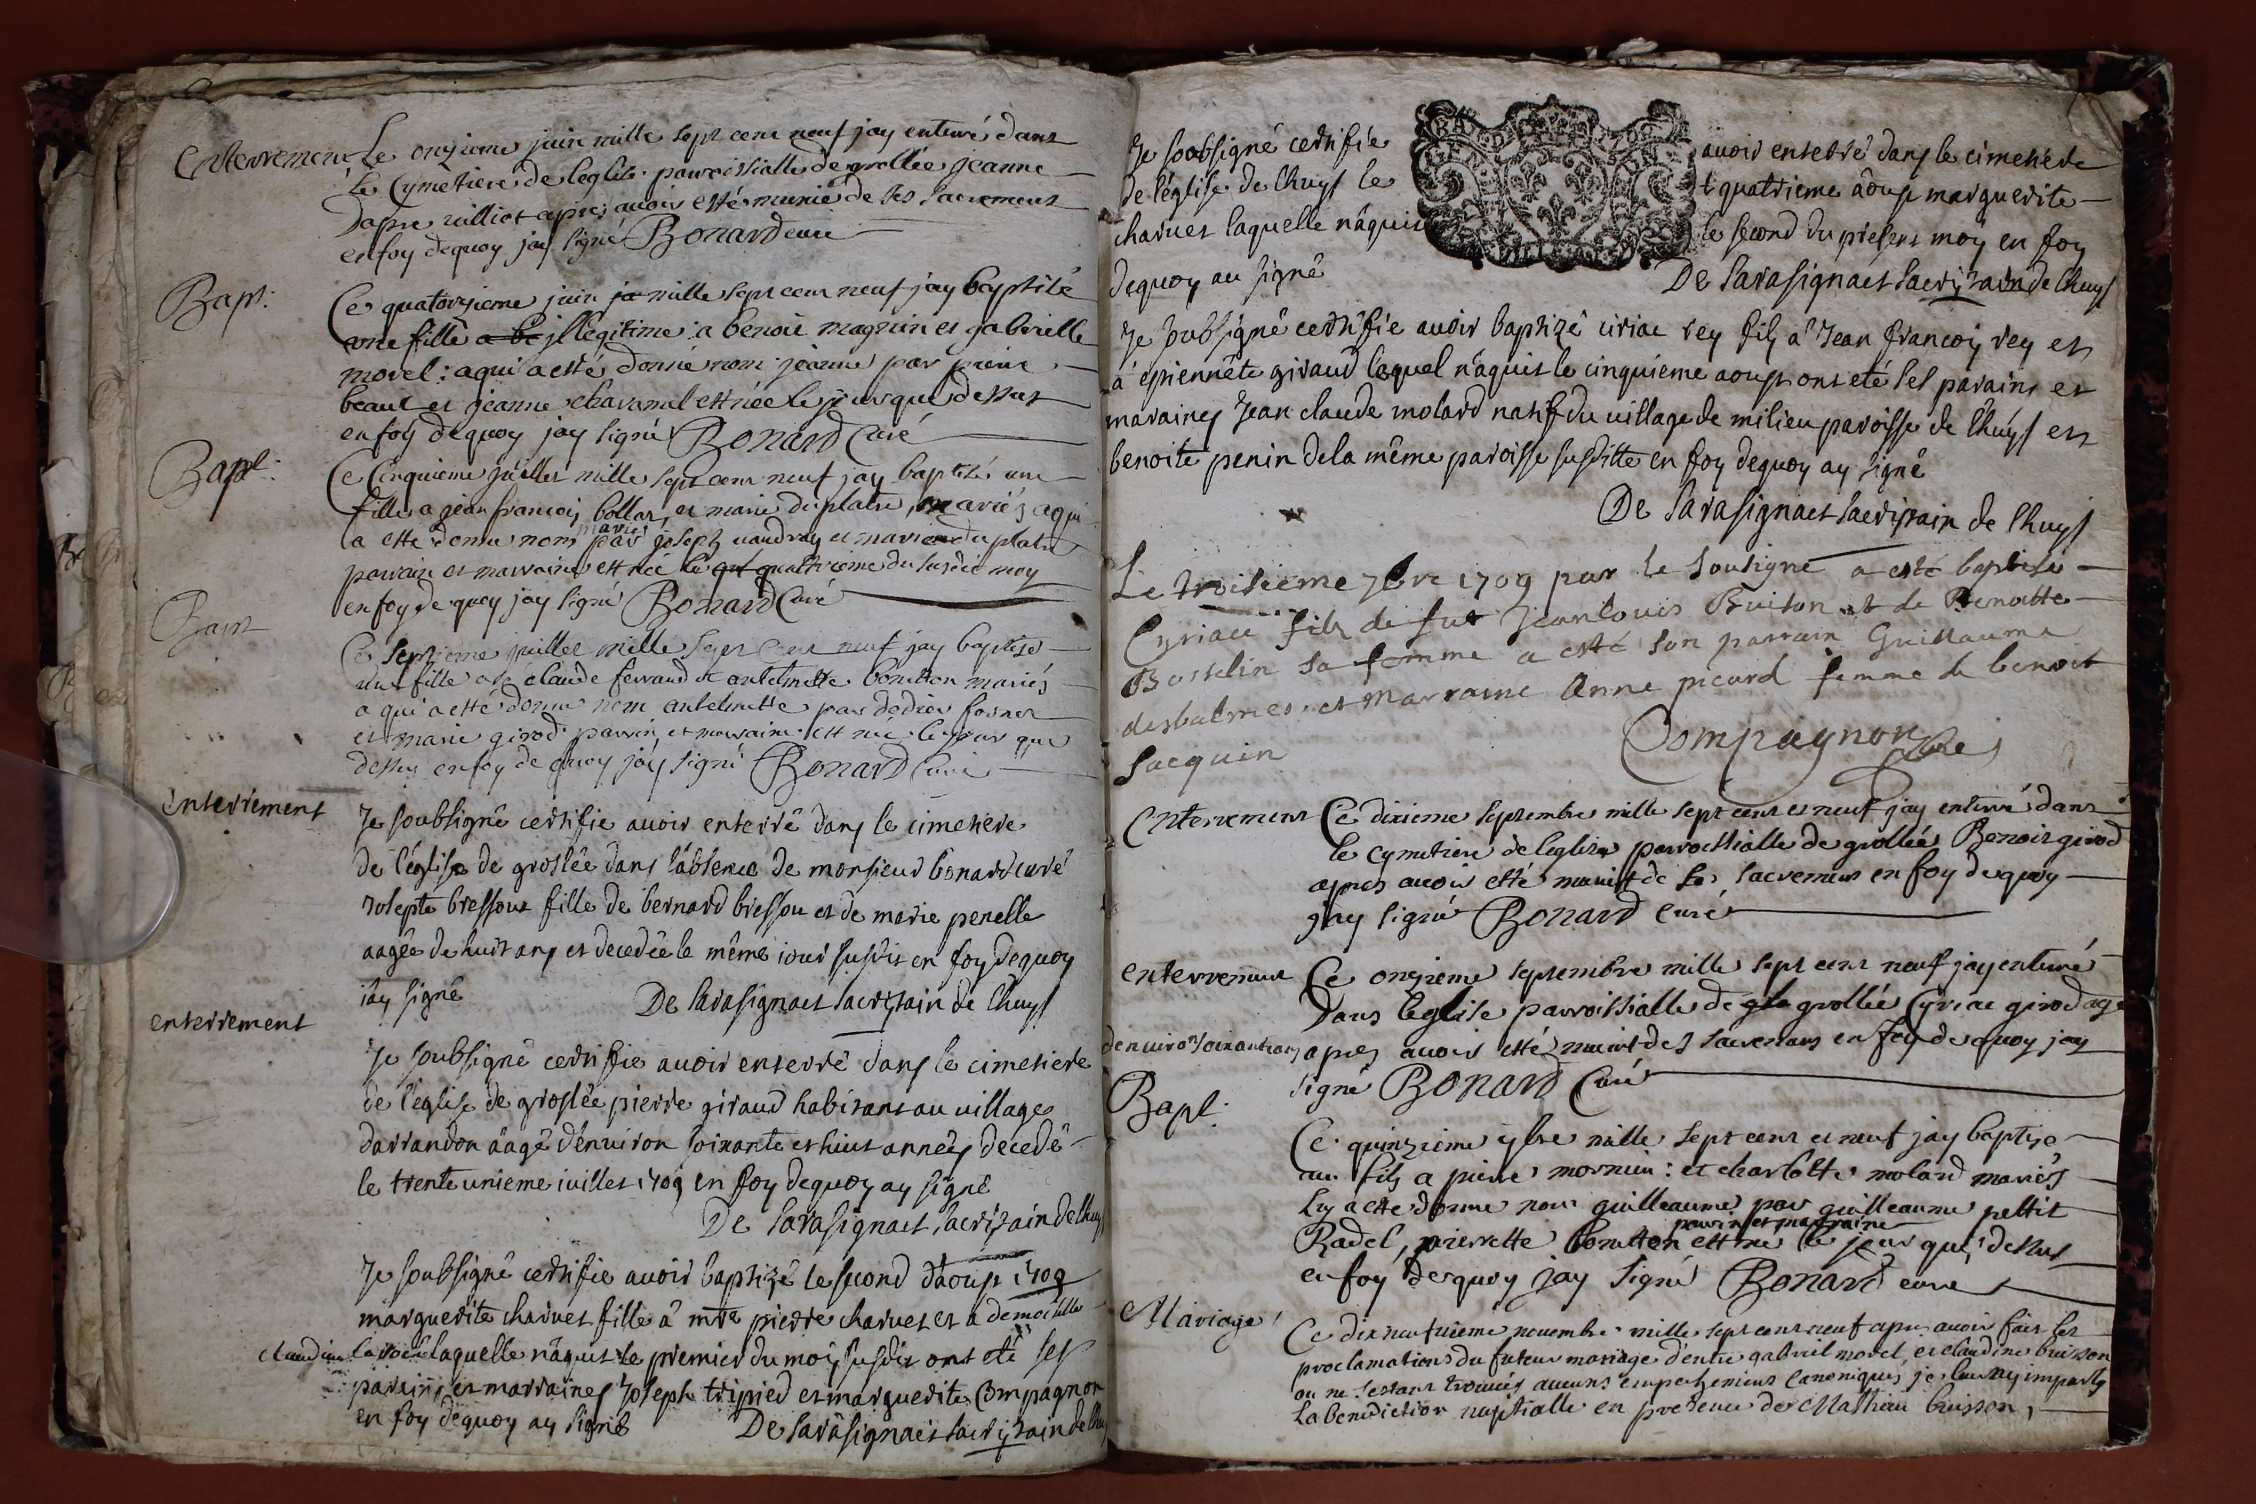 Enterrement
Le onzieme juin mille sept cent neuf jay enterré dans
le Cymetiere de leglise parroissialle de grollée jeanne
Dapre apres avoir esté munie de ses sacrements
en foy dequoy jay signé Bonard curé
Bapt:
Ce quatorzieme juin mille sept cent neuf jay baptisé
une fille jllegitime a benoit magnin et gabrielle
morel: a qui a esté donné nom jeanne par pierre
beaut et jeanne est née le jour que dessus
en foy dequoy jay signé Bonard Curé
Bapt:
Ce Cinquieme juillet mille sept cent neuf jay baptisé une
fille a jean francois bollar, et marie duplatre, mariés a qui
a esté donné nom marie par joseph vaudray et marie duplatre
parrain et marraine est née le quatrieme du susdit moy
en foy de quoy jay signé Bonard Curé
Bapt
Ce septieme juillet mille sept cent neuf jay baptisé
une fille a claude ferraud et antelmette bonetton mariés
a qui a esté donné nom antelmette par
et marie girod parrin et marraine est née le jour que
dessus en foy de quoy jay signé Bonard Curé
enterrement
Je soubsigné certifie avoir enterré dans le cimetiere
de l'église de groslée dans l'absence de monsieur bonard curé
Josepte bressoux fille de bernard bressou et de marie penelle
aagée de huit ans et decedée le même iour susdit en foy dequoy
iay signé De Sarasignaet sacristain de lhuys
enterrement
Je soubsigné certifie avoir enterré dans le cimetiere
de l'église de groslée pierre giraud habitant au village
darrandon âagé d'environ soixante et huit années decedé
le trente unieme iuillet 1709 en foy dequoy ay signé
De Sarasignaet sacristain de lhuys
Je soubsigné certifie avoir baptizé le second d'aoust 1709
marguerite charvet fille à mtre pierre charvet et a demoiselle
claudine laquelle nâquit le premier du mois susdit ont été ses
parains et marraines Joseph tripied et marguerite Compagnon
en foy dequoy ay signé De Sarasignaet sacristain de lhuys
Je soubsigné certifie avoir enterré dans le cimetiere
de l'église de lhuys le quatrieme âoust marguerite
charvet laquelle nâquit le second du present moy en foy
dequoy ay signé De Sarasignaet sacristain de lhuys
Je soubsigné certifie avoir baptizé ciriac rey fils â Jean françois rey et
â epiennête giraud lequel nâquit le cinquiéme aoust ont eté ses parains et
maraines Jean claude molard natif du village de milieu paroisse de lhuys et
benoite penin de la même paroisse susditte en foy dequoy ay signé
De Sarasignaet sacristain de lhuys
Le troisieme 7bre 1709 par le Sousigné a esté baptisé
Cyriace fils de fut Jean louis Buison et de Benoitte
Bosselin sa femme a esté son parrain Guillaume
desbalmes et Marraine Anne picard femme de benoit
Jacquin Compagnon Curé
Enterrement
Ce dixieme septembre mille sept cent et neuf jay enterré dans
le cymetiere de leglise parroissialle de grollée Benoit girod
apres avoir esté munist de ses sacrements en foy dequoy
jay signé Bonard curé
enterrement
Ce onzieme septembre mille sept cent neuf jay enterré
Dans leglise parroissialle de grollée Cyriac girod agé
denviron soixant ans apres avoir esté munist des sacremans en foy de quoy jay
signé Bonard Curé
Bapt:
Ce quinzieme 7bre mille sept cent et neuf jay baptisé
un fils a pierre mornieu: et charlotte molard mariés
luy a esté donné nom guilleaume par guilleaume pettit
Radel, pierrette bonetton parrin et marraine est né le jour que dessus
en foy dequoy jay signé Bonard curé
Mariage
Ce dix neufvieme novembre mille sept cent neuf apres avoir fait les
proclamations du futeur mariage d'entre gabriel morel, et claudine buisson
ou ne sestant trouvés aucuns empechemens Canoniques je leur ay imparty
la benediction nuptialle en presence de Mathieu buisson,